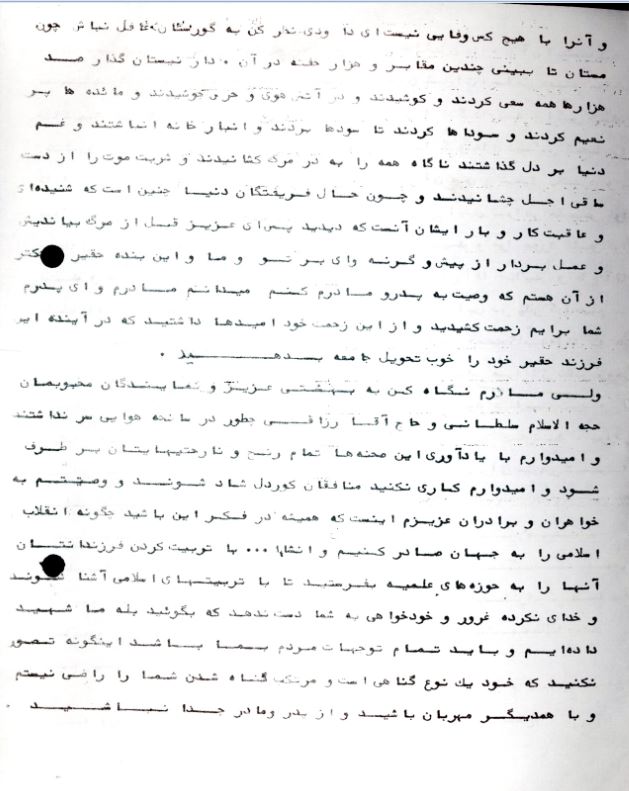 و آنرا با هیچ کس وفایی نیست ای دا ودی نظر کن به گورستان غافل نباش چون
مستان تا ببینی چندین مقابر و هزار خفته در آن
هزارها همه سعی کردند و کوشیدند و در آتش هوی و حرص جوشیدند و مائده ها پر
نعیم کردند و سوداها کردند تا سودها بردند و انبار خانه انباشتند و غم
دنیا بر دل گذاشتند ناگاه همه را به در مرگ کشانیدند و شربت موت را از دست
ساقی اجل چشانیدند و چون حال فریفتگان دنیا چنین است که شنیده ای
و عاقبت کار و بار ایشان آنست که دیدید پس ای عزیز قبل از مرگ بیاندیش
و عمل بردار از پیش و گرنه وای بر تو و ما و این بنده حقیر
از آن هستم که وصیت به پدر و مادرم کنم میدانم مادرم و ای پدرم
شما برایم زحمت کشیدید و از این زحمت خود امیدها داشتید که در آینده این
فرزند حقیر خود را خوب تحویل جامعه بدهید .
ولی مادرم نگاه کن به بهشتی عزیز و نمایندگان محبوبمان
حجه الاسلام سلطانی و حاج آقا رزاقی چطور در سانحه هوایی سر نداشتند
و امیدوارم با یادآوری این صحنه ها تمام رنج و ناراحتیهایتان بر طرف
شود و امیدوارم کاری نکنید منافقان کوردل شاد شوند و وصیتم به
خواهران و برادران عزیزم اینست که همیشه در فکر این باشید چگونه انقلاب
اسلامی را به جهان صادر کنیم و انشاا... با تربیت کردن فرزندانتان
آنها را به حوزه های علمیه بفرستید تا با تربیتهای اسلامی آشنا شوند
و خدای نکرده غرور و خودخواهی به شما دست ندهد که بگوئید بله ما شهید
داده ایم و باید تمام توجهات مردم بما باشد اینگونه تصور
نکنید که خود یك نوع گناهی است و مرتکب گناه شدن شما را راضی نیستم
و با همدیگر مهربان باشید و از پدر و مادر جدا نباشید .